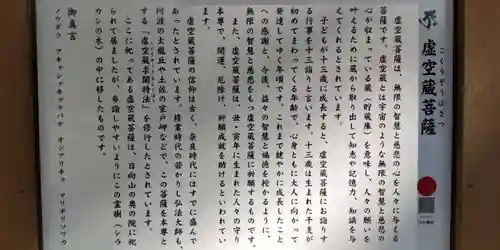 虚空蔵菩薩
こくうぞうぼさつ
虚空蔵菩薩は、無限の智慧と慈悲の心を人々に与える
菩薩です。虚空蔵とは宇宙のような無限の智慧と慈悲の
心が収まっている蔵（貯蔵庫）を意味し、人々の願いを
叶えるために蔵から取り出して知恵や記憶力、知識を与
えてくれるとされています。
子どもが十三歳に成長すると、虚空蔵菩薩にお詣りす
る行事を十三詣りと言います。十三歳は生まれた干支が
初めてまわってくる年齢で、心身ともに大人に向かって
発達してゆく年頃です。これまで健やかに成長したこと
への感謝と、今後、益々の智慧と福徳を授かるように、
無限の智慧と慈悲をもつ虚空蔵菩薩に祈願するものです。
また、虚空蔵菩薩は、丑・寅年に生まれた人々の守り
本尊で、開運、厄除け、祈願成就を助けるといわれてい
ます。
虚空蔵菩薩の信仰は古く、奈良時代にはすでに盛んで
あったとされています。修業時代の若かりし弘法大師も、
阿波の太龍丘や土佐の室戸岬などで、この菩薩を本尊と
する「虚空蔵求聞持法」を修行したとされています。
ここに祀ってある虚空蔵菩薩は、日向山の奥の院に祀
られて居ましたが、参詣しやすいようにこの霊樹（シラ
カシの木）の中に移したものです。
御真言
ノウボウ　アキャシャキャラバヤ　オンアリキャ　マリボリソワカ